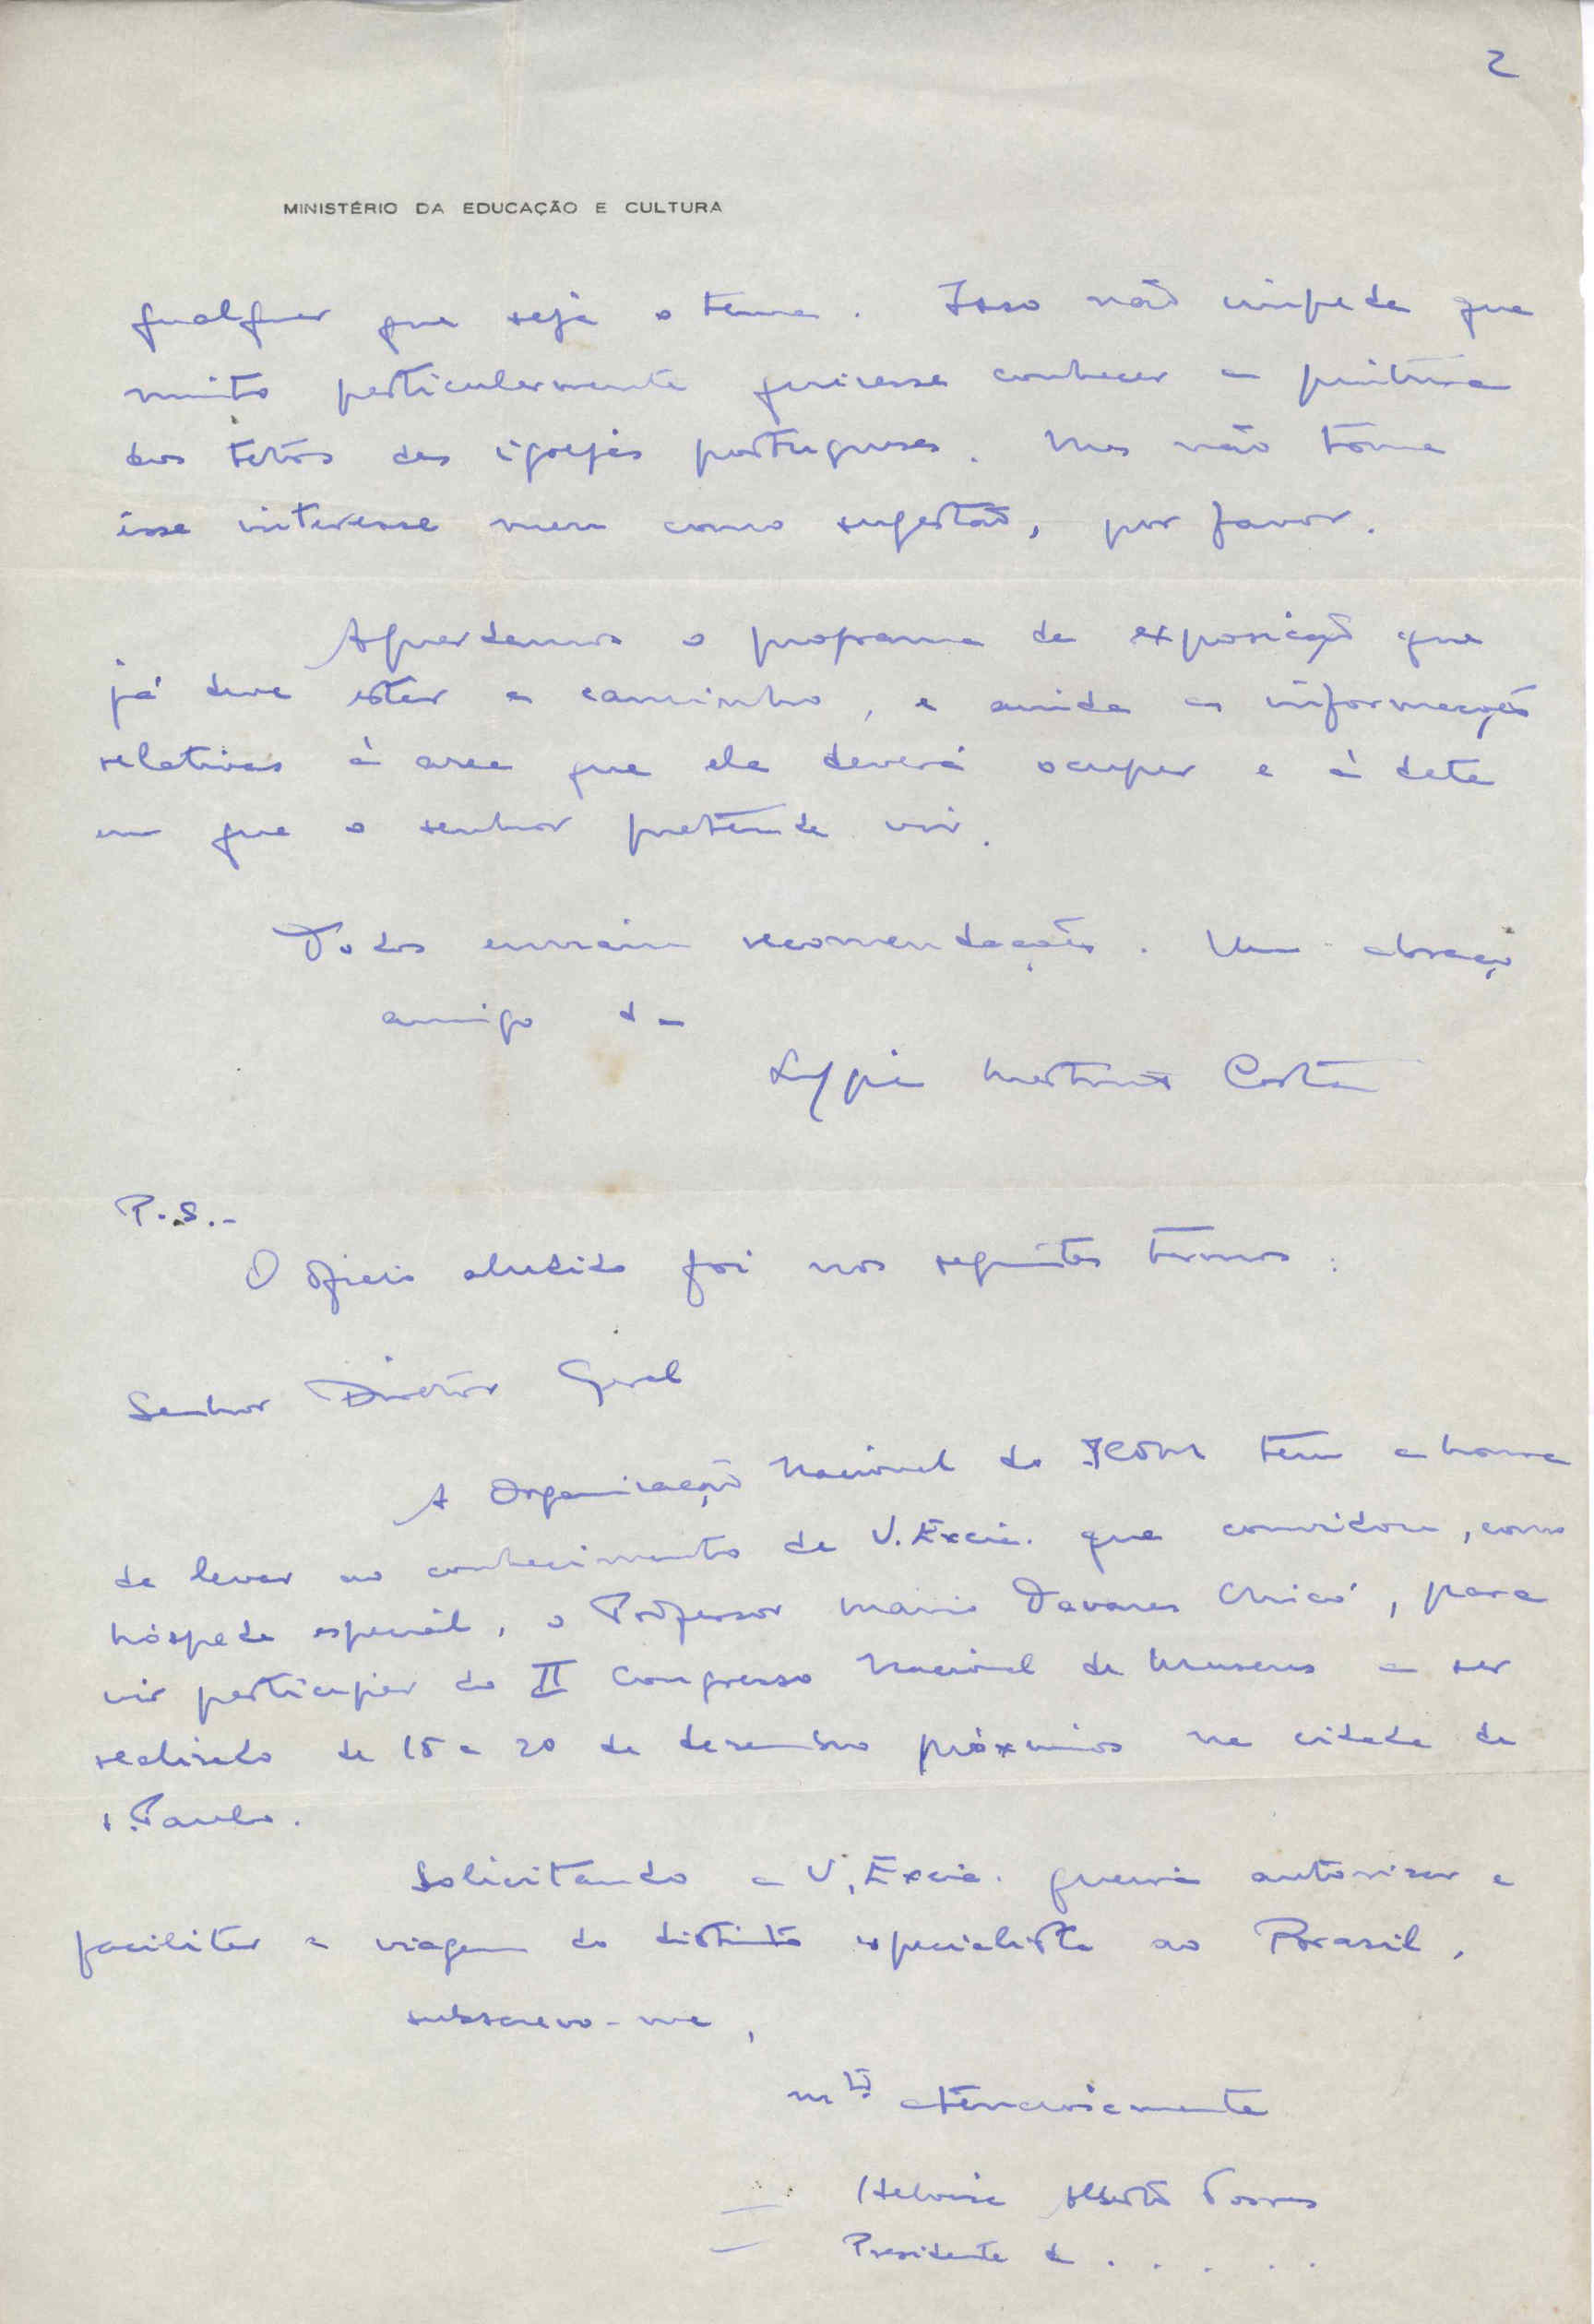 2
MINISTÉRIO DA EDUCAÇÃO E CULTURA
qualquer que seja o tema. Isso não impede que
muito particularmente quisesse conhecer a pintura
dos tetos das igrejas portuguesas. Mas não tome
êsse interesse meu como sugestão, por favor.
Aguardamos o programa da exposição que
já deve estar a caminho, e ainda as informações
relativas à area que ela deverá ocupar e à data
em que o senhor pretende vir.
Todos enviam recomendações. Um abraço
amigo da
Lygia Martins Costa
P.S.-
O ofício aludido foi nos seguintes termos:
Senhor Diretor Geral
A Organização Nacional do ICOM tem a honra
de levar ao conhecimento de V. Excia. que convidou, como
hóspede especial, o Professor Mario Tavares Chicó, para
vir participar do II Congresso Nacional de Museus a ser
realizado de 15 a 20 de dezembro próximo na cidade de
S. Paulo.
Solicitando a V. Excia. queira autorizar e
facilitar a viagem do distinto especialista ao Brasil,
subscrevo-me,
mto atenciosamente
Heloisa Alberto Torres
Presidente d . . . . .